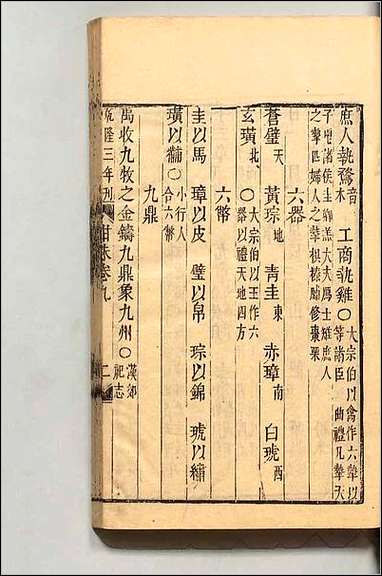 庶人執鶩音木 工商執雞〇大宗伯以禽作六摯以等諸臣 曲禮凡摯天
子鬯諸侯圭 大夫 士雉庶人
之摯匹婦人之摯棋榛脯脩棗栗
六器
蒼璧天 黃琮地 青圭東 赤璋南 白琥西
玄璜北 〇大宗伯以玉作六器以禮天地四方
六幣
圭以馬 璋以皮 璧以帛 琮以錦 琥以繡
璜以黼 〇小行人合六幣
九鼎
禹收九牧之金鑄九鼎象九州〇漢郊祀志
乾隆三年刊 紺珠卷九 二